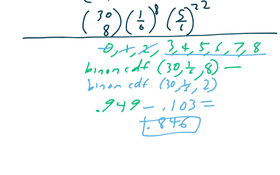 (30 8) (1/6)^8 (5/6)^22
0, 1, 2, 3, 4, 5, 6, 7, 8
binom cdf (30, 1/6, 8) —
binom cdf (30, 1/6, 2)
.949 - .103 =
.846